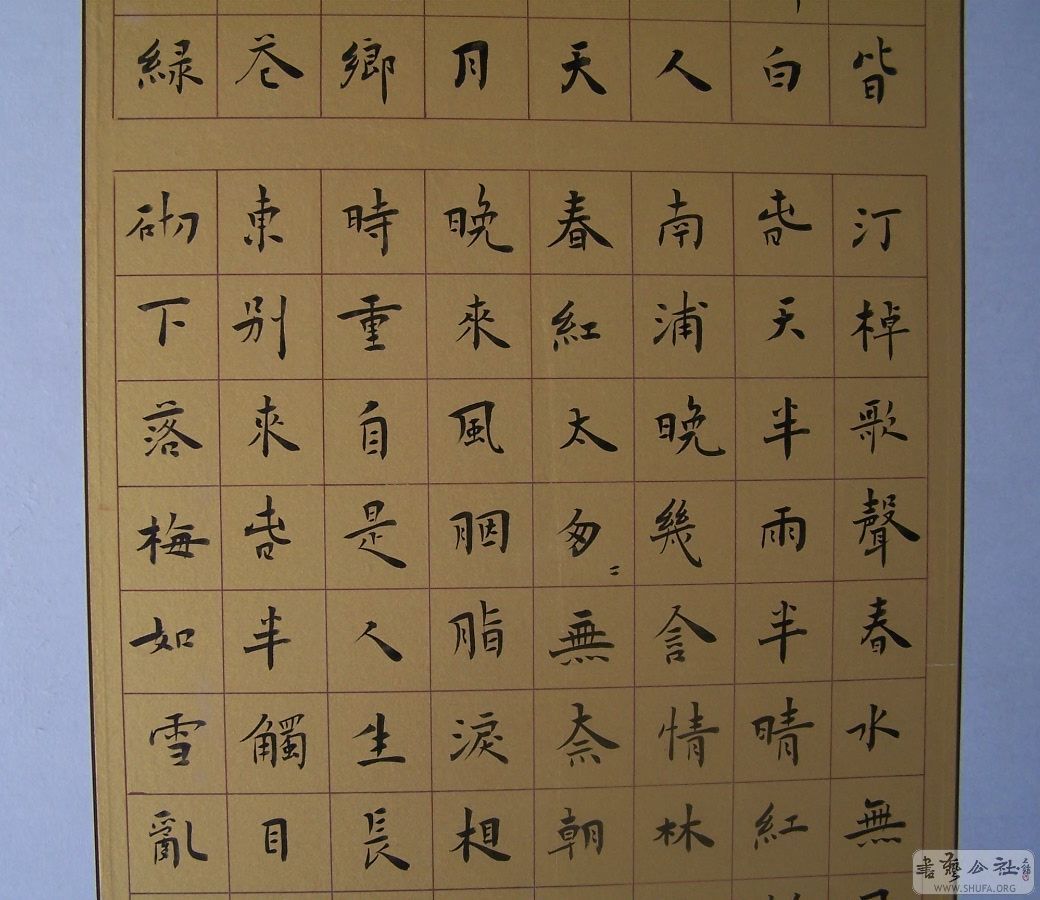 皆
白
人
天
月
鄉
巷
緑
汀棹歌聲春水無
旾天半雨半晴紅
南浦晚幾情林
春紅太匆〻無奈朝
晚來風胭脂淚相
時重自是人生長
東別來旾半觸目
砌下落梅如雪亂
書藝公社
WWW.SHUFA.ORG